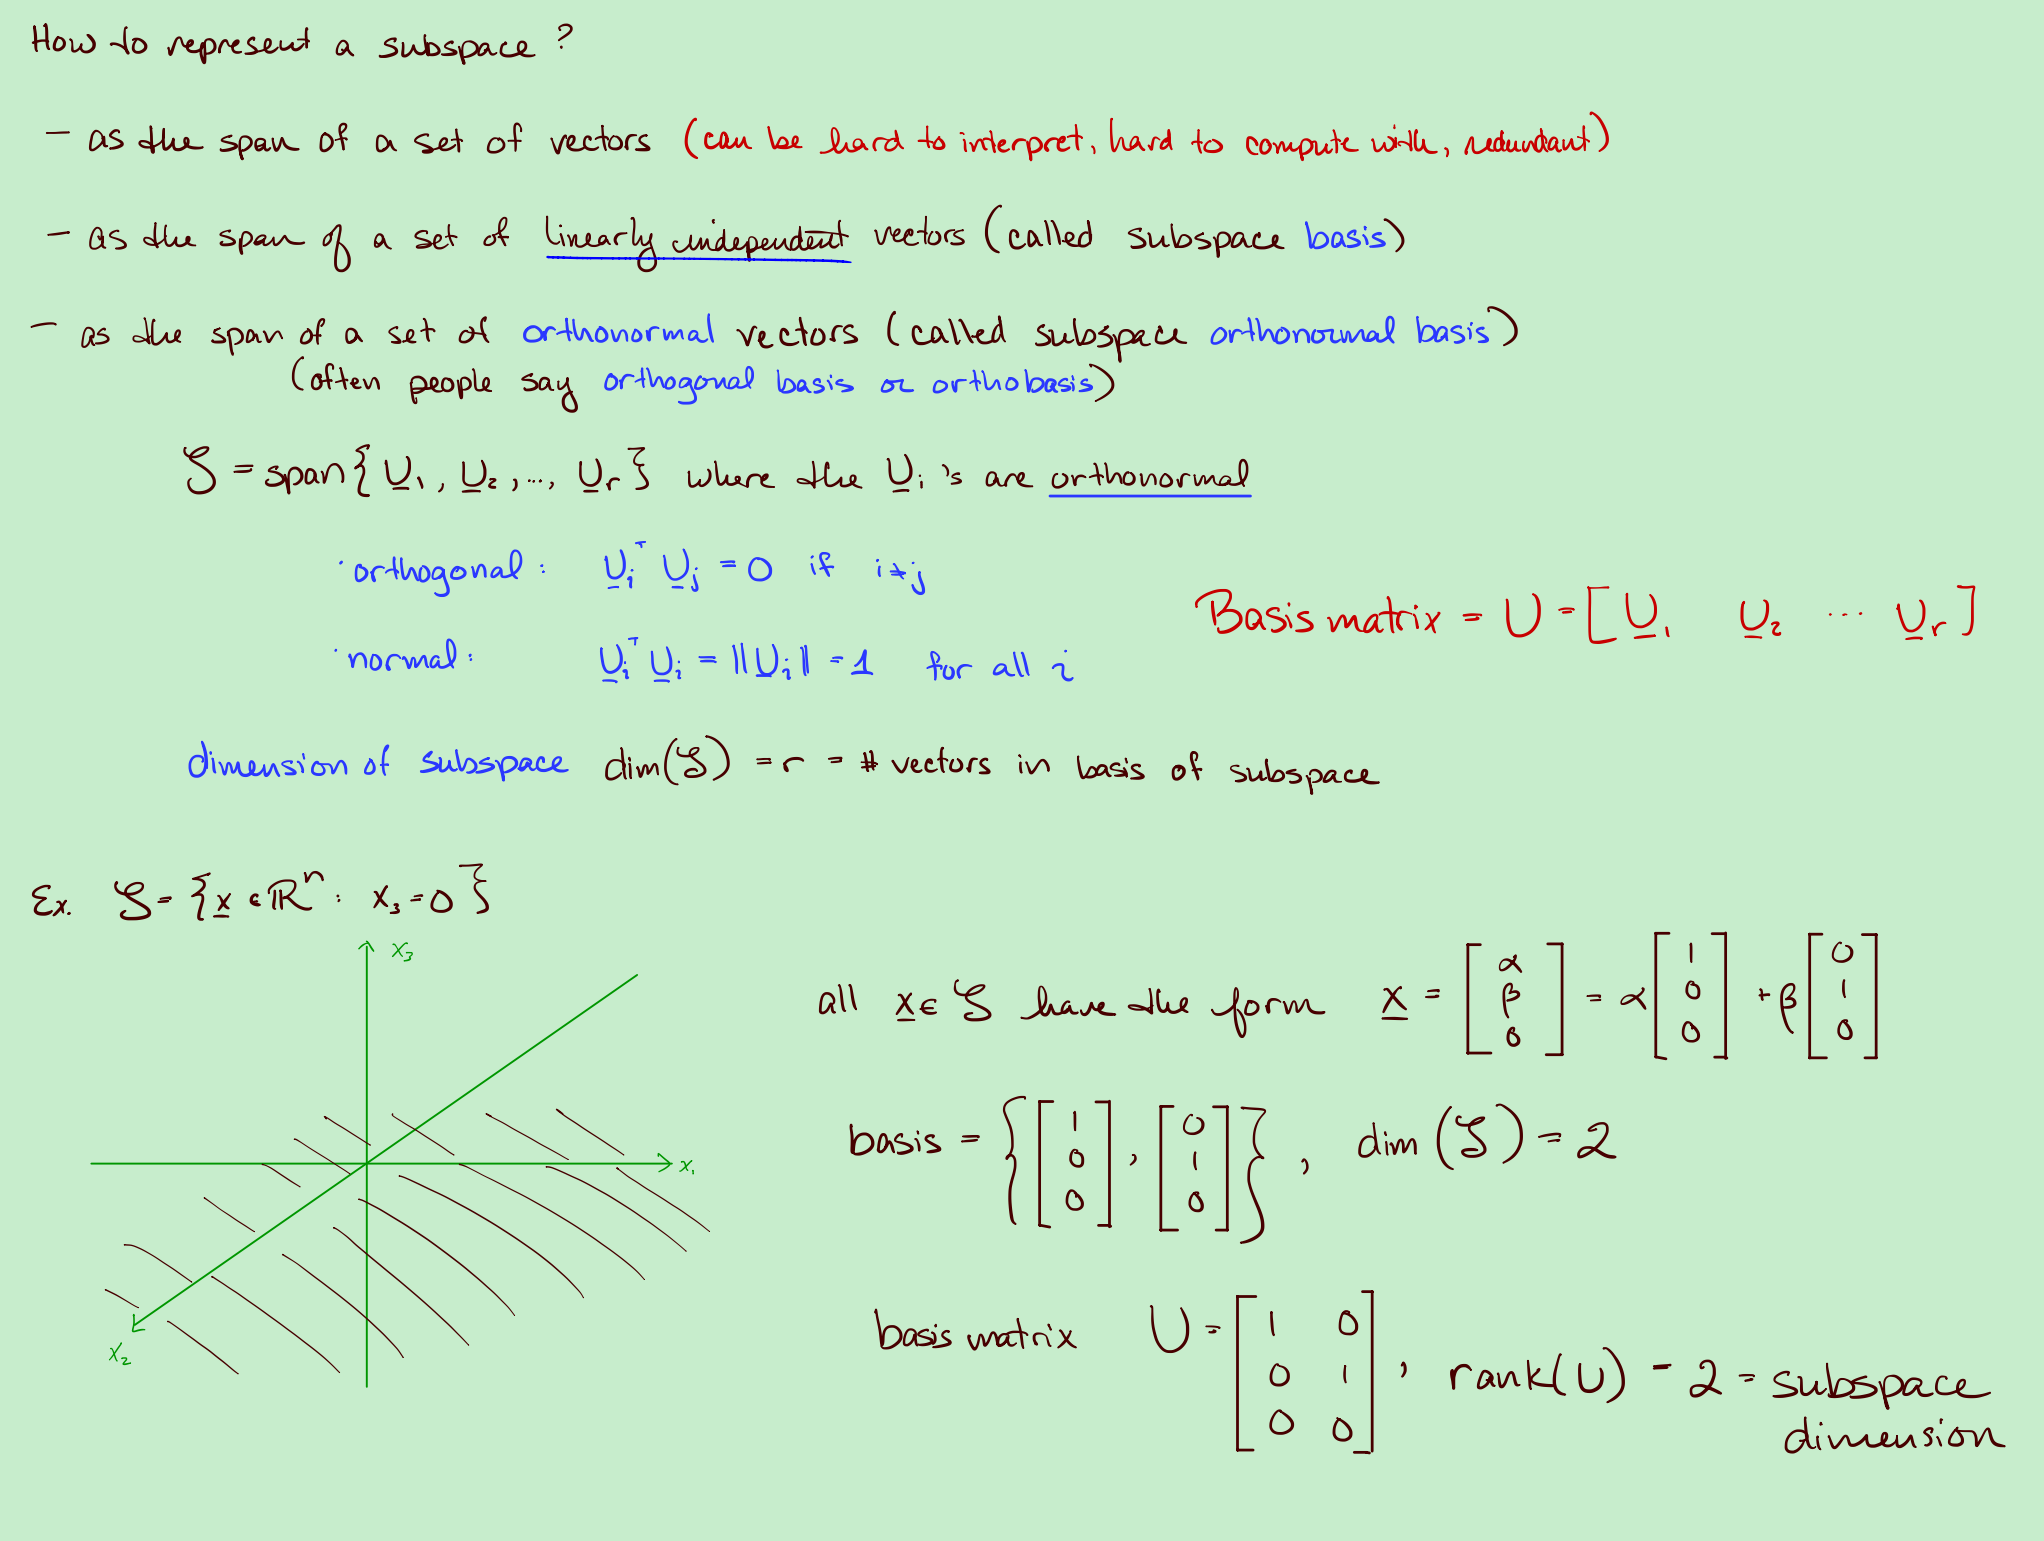 How to represent a subspace?
- as the span of a set of vectors (can be hard to interpret, hard to compute with, redundant)
- as the span of a set of linearly independent vectors (called subspace basis)
- as the span of a set of orthonormal vectors (called subspace orthonormal basis)
(often people say orthogonal basis or orthobasis)
S = span{U₁, U₂, ..., Uᵣ} where the Uᵢ's are orthonormal
· orthogonal: Uᵢᵀ Uⱼ = 0 if i≠j
Basis matrix = U = [U₁ U₂ ⋯ Uᵣ]
· normal: Uᵢᵀ Uᵢ = ||Uᵢ|| = 1 for all i
dimension of subspace dim(S) = r = # vectors in basis of subspace
Ex. S = {x ∈ ℝⁿ: x₃ = 0}
x₃
x₁
x₂
all x ∈ S have the form x = [α β 0] = α [1 0 0] + β [0 1 0]
basis = {[1 0 0], [0 1 0]}, dim(S) = 2
basis matrix U = [1 0
0 1
0 0], rank(U) = 2 = subspace
dimension